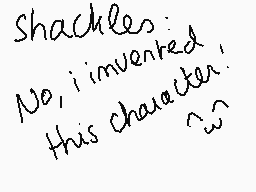 shackles:
No, i invented
this character!
^w^